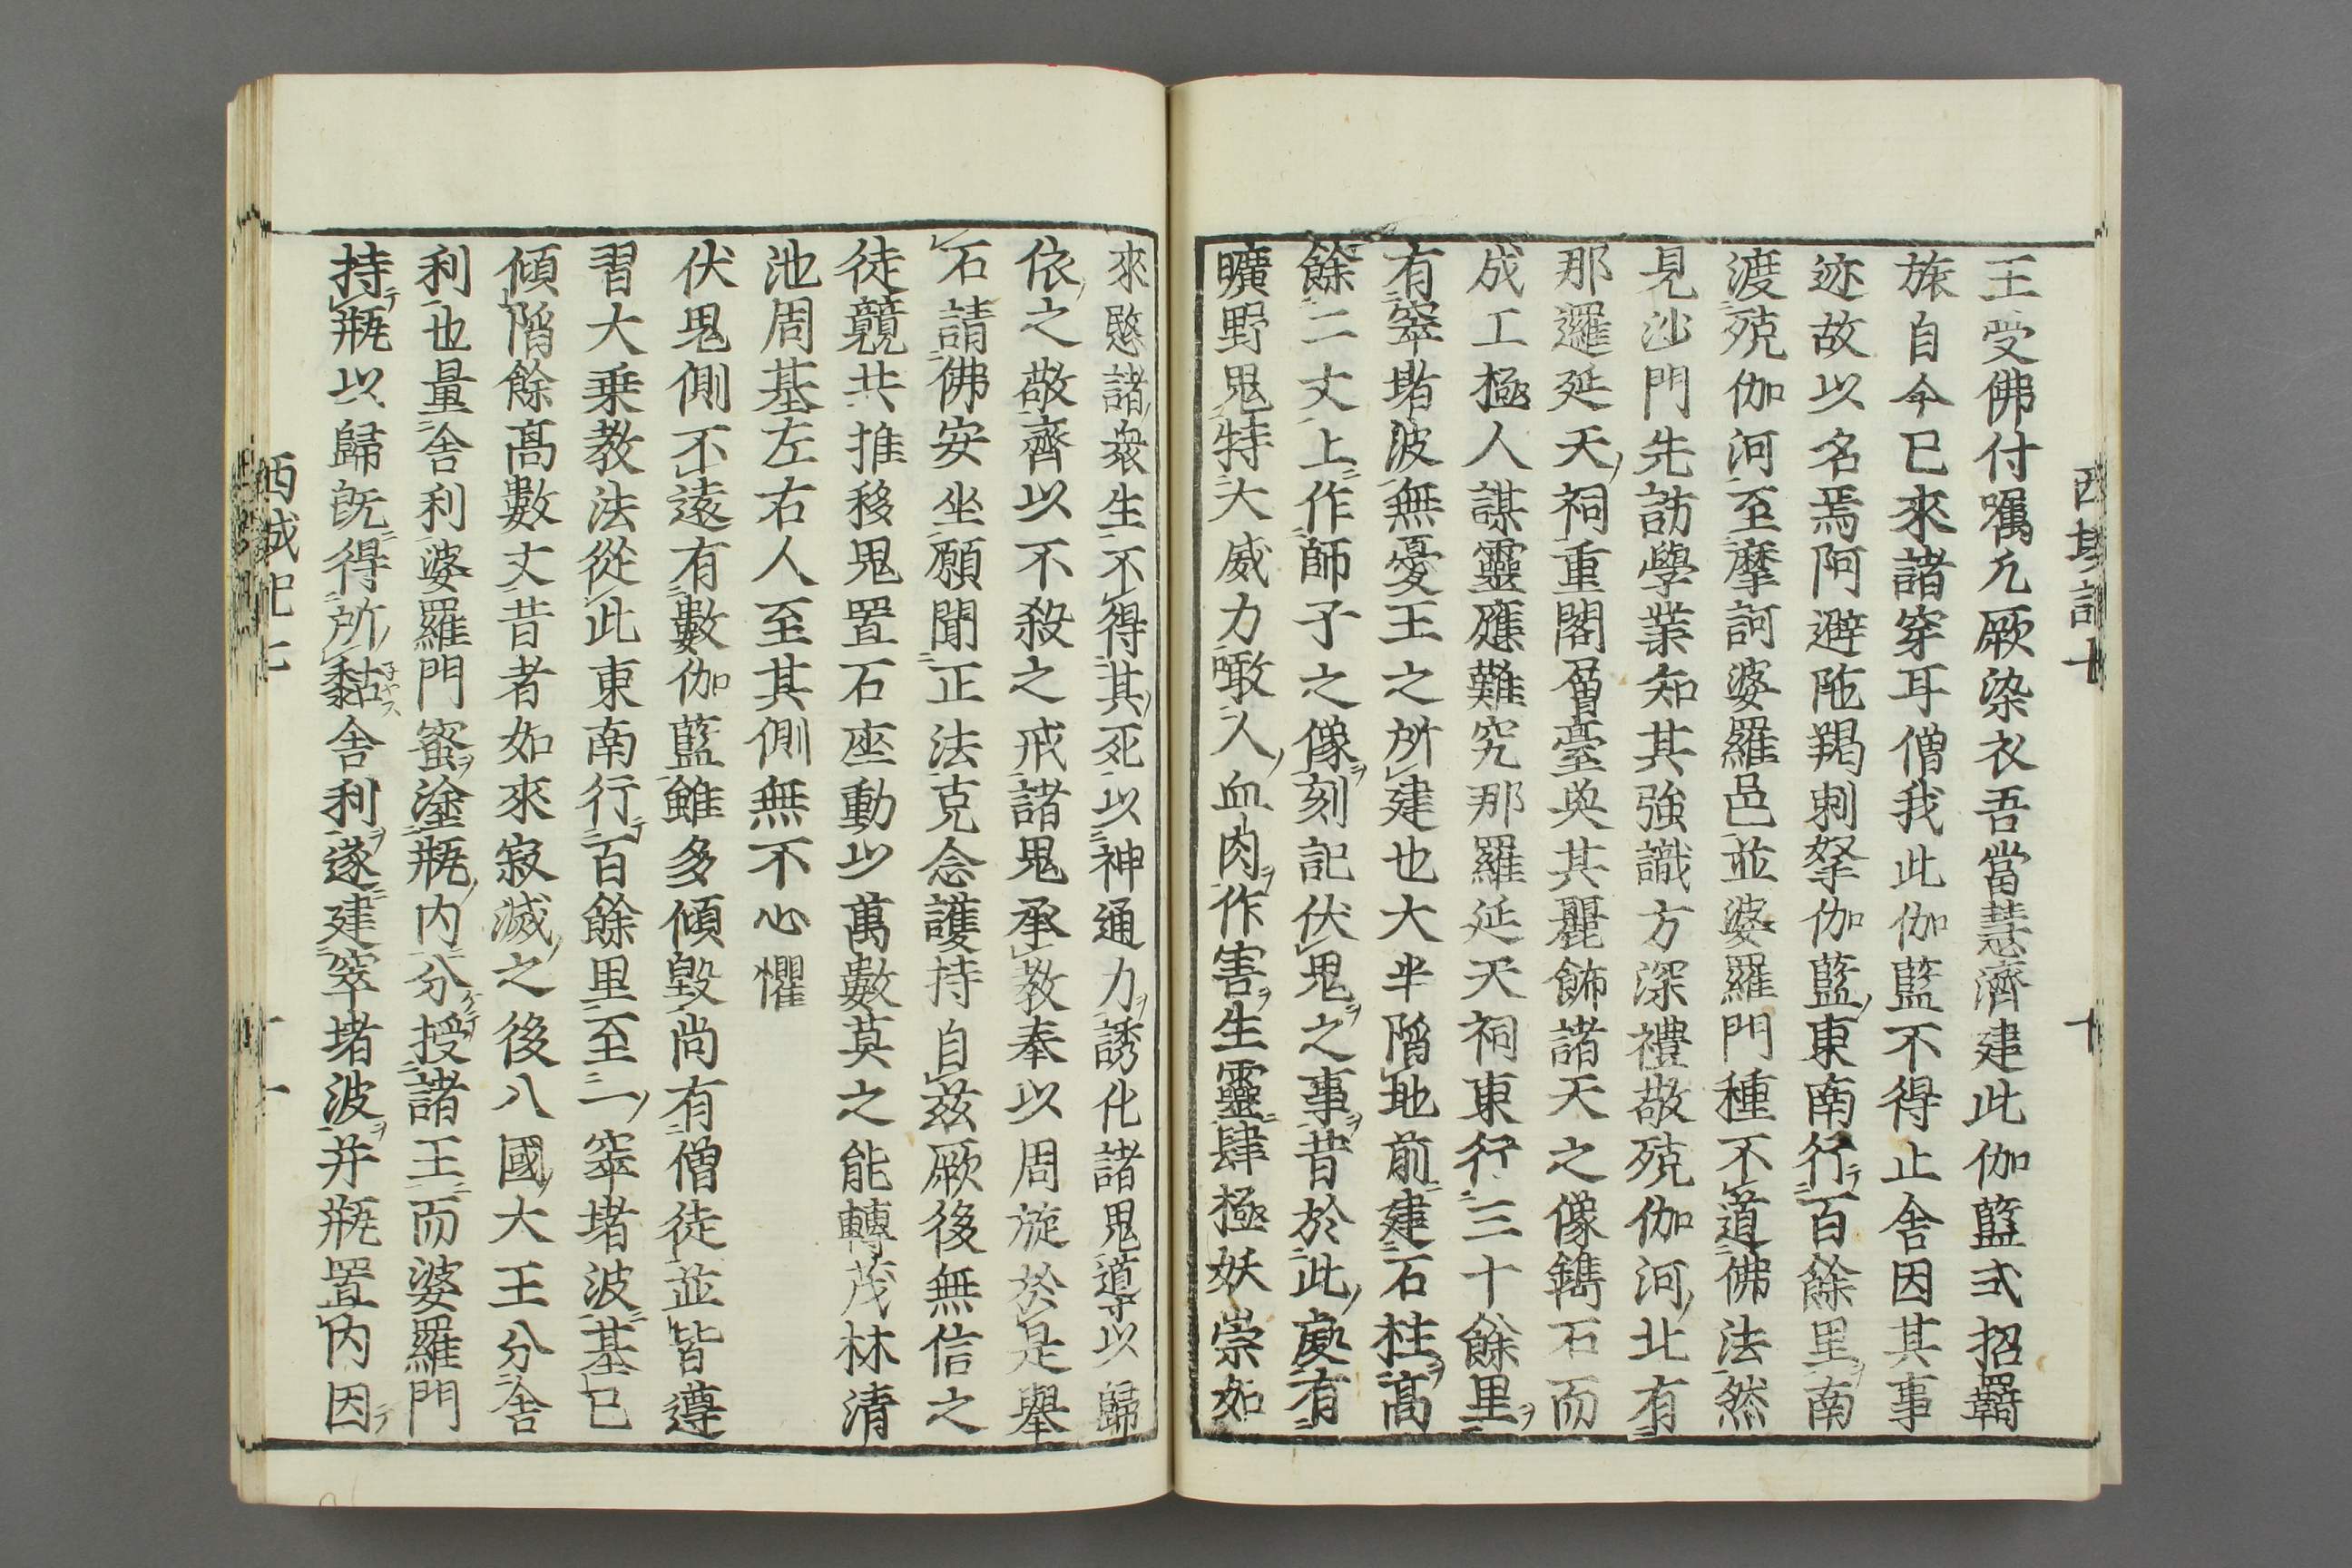 王受佛付囑允厥染衣吾當慧濟建此伽藍式招羇
旅自今已來諸穿耳僧我此伽藍不得止舍因其事
迹故以名焉阿避陁羯剌拏伽藍東南行百餘里南
渡殑伽河至摩訶婆羅邑並婆羅門種不遵佛法然
見沙門先訪學業知其強識方深禮敬殑伽河北有
那邏延天祠重閣層臺奐其麗飾諸天之像鐫石而
成工極人謀靈應難究那羅延天祠東行三十餘里
有窣堵波無憂王之所建也大半陷地前建石柱高
餘二丈上作師子之像刻記伏鬼之事昔於此處有
曠野鬼特大威力噉人血肉作害生靈肆極妖祟如
來愍諸衆生不得其死以神通力誘化諸鬼導以歸
依之敬齊以不殺之戒諸鬼承教奉以周旋於是舉
石請佛安坐願聞正法克念護持自茲厥後無信之
徒競共推移鬼置石座動以萬數莫之能轉茂林清
池周基左右人至其側無不心懼
伏鬼側不遠有數伽藍雖多傾毀尚有僧徒並皆遵
習大乗教法從此東南行百餘里至一窣堵波基已
傾陷餘高數丈昔者如來寂滅之後八國大王分舍
利也量舍利婆羅門蜜塗瓶内分授諸王而婆羅門
持瓶以歸旣得所黏舍利遂建窣堵波并瓶置内因